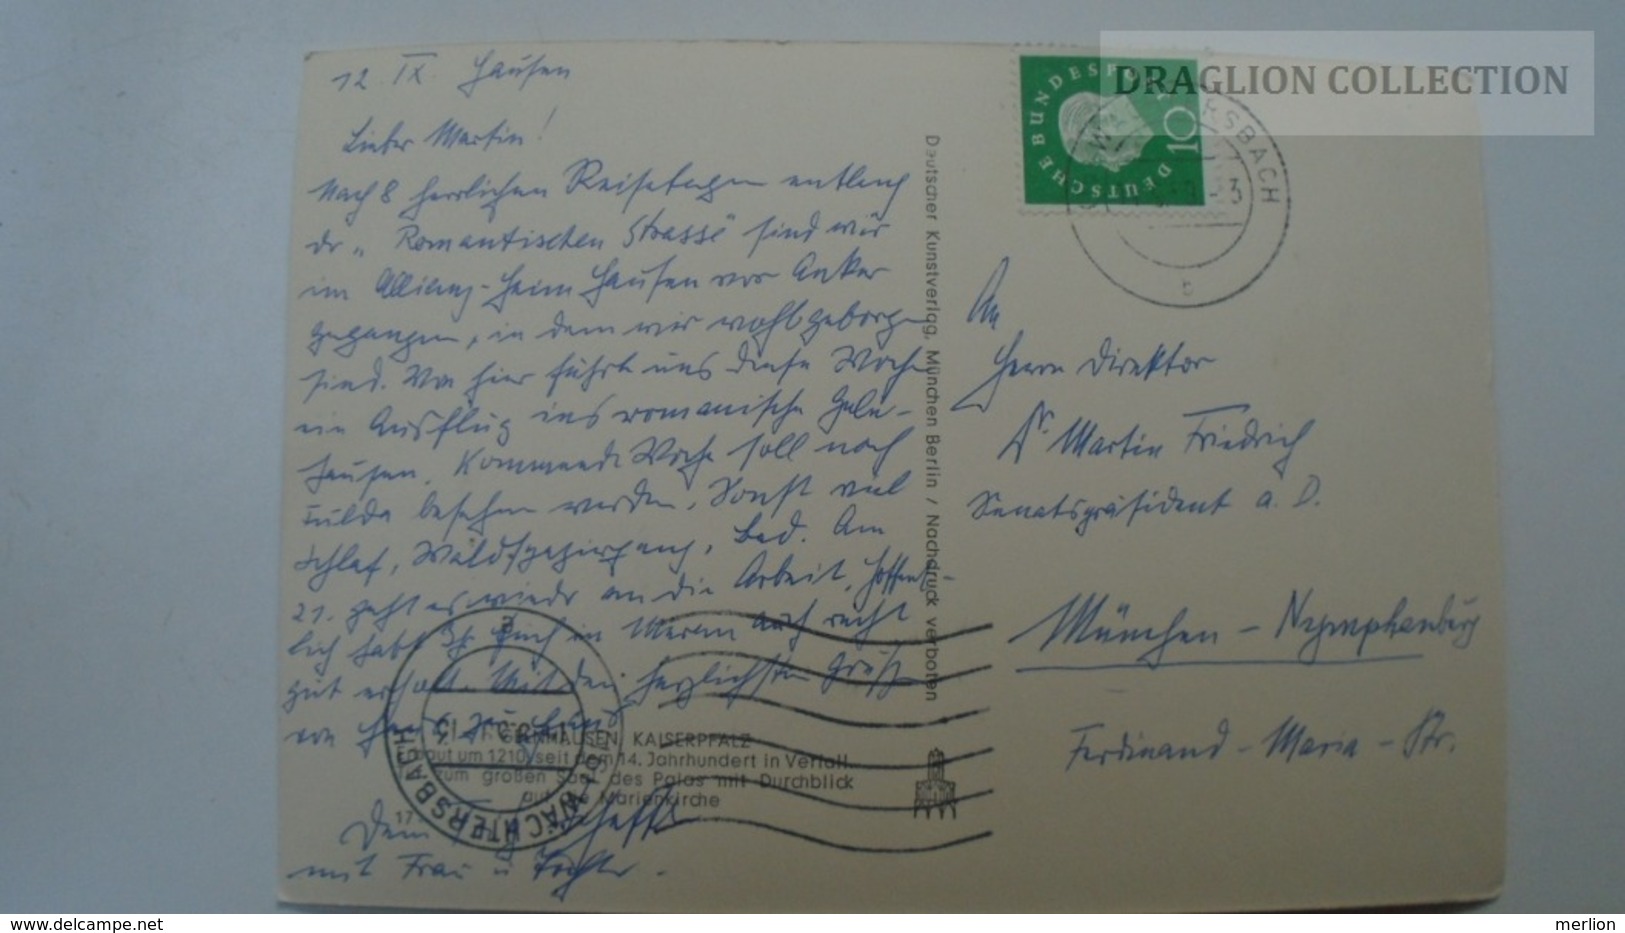 12. IX. Hausen
Lieber Martin!
Nach 8 herrlichen Reisetagen entlang
dr „Romantischen Strasse" sind wir
im Allianz-Heim Hausen vor Anker
gegangen, in dem wir wohlgeborgen
sind. Von hier führt uns diese Woche
ein Ausflug ins romanische Geln-
hausen. Kommende Woche soll noch
Fulda besehen werden. Sonst viel
Schlaf, Waldspaziergang, Bad. Am
21. geht es wieder an die Arbeit. Hoffent-
lich habt Ihr Euch in Meran auch recht
gut erholt. Mit den herzlichsten Grüßen
von
GELNHAUSEN, KAISERPFALZ
erbaut um 1210, seit dem 14. Jahrhundert in Verfall
zum großen Saal des Palas mit Durchblick
auf die Marienkirche
17
Dein
mit Frau u Tochter.
Deutscher Kunstverlag, München Berlin / Nachdruck verboten
DEUTSCHE BUNDESPOST
10
WÄCHTERSBACH
b
WÄCHTERSBACH
An
Herrn Direktor
Dr. Martin Friedrich
Senatspräsident a. D.
München - Nymphenburg
Ferdinand - Maria - Str.
DRAGLION COLLECTION
delcampe.net
merlion